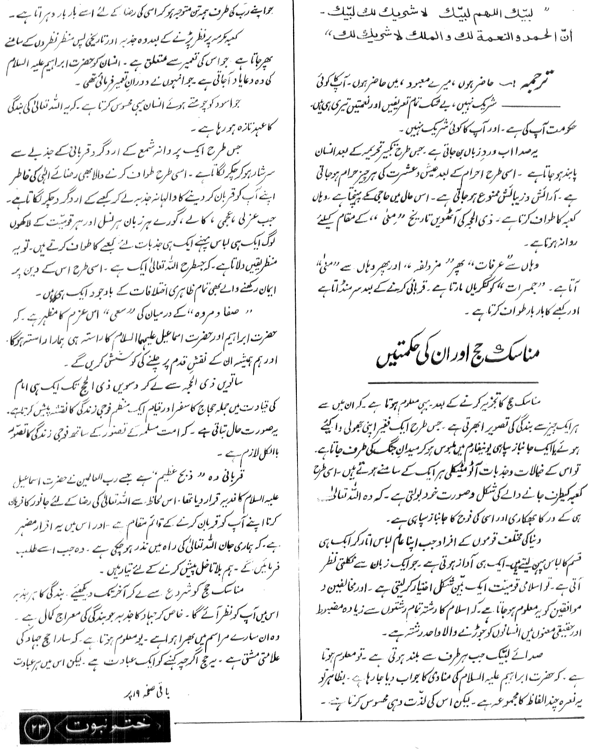 " لبیك اللھم لبیك لا شریك لك لبیك ـ
انّ الحمد و النعمۃ لك والملك لا شریك لك "
ترجمہ :ـ حاضر ہوں ، میرے معبود ، میں حاضر ہوں ۔ آپ کا کوئی
شریک نہیں ، بے شک تمام تعریفیں اور نعمتیں تیری ہی ہیں
حکومت آپ کی ہے ۔ اور آپ کا کوئی شریک نہیں ۔
یہ صدا اب ورد زباں بن جاتی ہے ۔ جس طرح تکبیر تحریمہ کے بعد انسان
پابند ہو جاتا ہے ۔ اسی طرح احرام کے بعد عیش و عشرت کی ہر چیز حرام ہو جاتی
ہے ۔ آرائش و زیبائش ممنوع ہو جاتی ہے ۔ اس عالم میں حاجی مکے پہنچتا ہے ۔ وہاں
کعبہ کا طواف کرتا ہے ۔ ذی الحجہ کی آٹھویں تاریخ "منیٰ" کے مقام کیلئے
روانہ ہوتا ہے ۔
وہاں سے "عرفات" پھر "مزدلفہ" ، اور پھر وہاں سے "منیٰ"
آتا ہے ۔ "جمرات" کو کنکریاں مارتا ہے ۔ قربانی کرنے کے بعد سر منڈاتا ہے
اور کعبے کا بار بار طواف کرتا ہے ۔
مناسک حج اور ان کی حکمتیں
مناسک حج کا تجزیہ کرنے کے بعد یہی معلوم ہوتا ہے کہ ان میں سے
ہر ایک چیز سے بندگی کی تصویر ابھرتی ہے ۔ جس طرح ایک فقیر اپنی جھولی وا کیئے
ہوئے یا ایک جانباز سپاہی یونیفارم میں ملبوس ہو کر میدان جنگ کی طرف جاتا ہے
تو اس کے خیالات و جذبات آٹومیٹکلی ہر ایک کے سامنے ہوتے ہیں ۔ اسی طرح
کعبہ کیطرف جانے والے کی شکل و صورت خود بولتی ہے ۔ کہ وہ اللہ تعالیٰ
ہی کے در کا بھکاری اور اسی کی فوج کا جانباز سپاہی ہے ۔
دنیا کی مختلف قوموں کے افراد جب اپنا عام لباس اتار کر ایک ہی
قسم کا لباس پہن لیتے ہیں ۔ ایک ہی آواز ہوتی ہے جو ایک زبان سے نکلتی نظر
آتی ہے ۔ تو اسلامی قومیت ایک بیّن شکل اختیار کر لیتی ہے ۔ اور مخالفین و
موافقین کو یہ معلوم ہو جاتا ہے کہ اسلام کا رشتہ تمام رشتوں سے زیادہ مضبوط
اور حقیقی معنوں میں انسانوں کو جوڑنے والا واحد رشتہ ہے ۔
صدائے لبیک جب ہر طرف سے بلند ہوتی ہے ۔ تو معلوم ہوتا
ہے ۔ کہ حضرت ابراہیم علیہ السلام کی منادی کا جواب دیا جا رہا ہے ۔ بظاہر تو
یہ نعرہ چند الفاظ کا مجموعہ ہے ۔ لیکن اس کی لذت وہی محسوس کرتا ہے ۔
جو اپنے رب کی طرف ہمہ تن متوجہ ہو کر اسی کی رضا کے لئے اسے بار بار دہراتا ہے ۔
کعبہ کو سر پر نظر پڑنے کے بعد وہ جذبہ اور تاریخی پس منظر نظروں کے سامنے
پھر جاتا ہے جو اس کی تعمیر سے متعلق ہے ۔ انسان کو حضرت ابراہیم علیہ السلام
کی وہ دعا یاد آ جاتی ہے ۔ جو انہوں نے دوران تعمیر فرمائی تھی ۔
حجر اسود کو چومتے ہوئے انسان یہی محسوس کرتا ہے ۔ کہ یہ اللہ تعالیٰ کی بندگی
کا عہد تازہ ہو رہا ہے ۔
جس طرح ایک پروانہ شمع کے ارد گرد قربانی کے جذبے سے
سرشار ہو کر چکر لگاتا ہے ۔ اسی طرح طواف کرنے والا بھی رضائے الٰہی کی خاطر
اپنے آپ کو قربان کر دینے کا والہانہ جذبہ لے کر کعبے کے ارد گرد چکر لگاتا ہے ۔
جب عربی ، عجمی ، کالے ، گورے ہر زبان ہر نسل اور ہر قومیت کے لاکھوں
لوگ ایک ہی لباس پہنے ایک ہی جذبات لئے کعبے کا طواف کرتے ہیں ۔ تو یہ
منظر یقیں دلاتا ہے ۔ کہ جس طرح اللہ تعالیٰ ایک ہے ۔ اسی طرح اس کے دین پر
ایمان رکھنے والے بھی تمام ظاہری اختلافات کے باوجود ایک ہی ہیں ۔
"صفا و مروہ" کے درمیان کی "سعی" اس عزم کا مظہر ہے ۔ کہ
حضرت ابراہیم اور حضرت اسماعیل علیہما السلام کا راستہ ہی ہمارا راستہ ہو گا ۔
اور ہم ہمیشہ ان کے نقش قدم پر چلنے کی کوشش کریں گے ۔
ساتویں ذی الحجہ سے لے کر دسویں ذی الحج تک ایک ہی امام
کی قیادت میں جملہ حجاج کا سفر اور قیام ایک منظم فوجی زندگی کا نقشہ پیش کرتا ہے ۔
یہ صورت حال بتاتی ہے ۔ کہ امت مسلمہ کے تصور کے ساتھ فوجی زندگی کا تصور
بالکل لازم ہے ۔
قربانی وہ "ذبح عظیم" ہے جسے رب العالمین نے حضرت اسماعیل
علیہ السلام کا فدیہ قرار دیا تھا ۔ اس لحاظ سے اللہ تعالیٰ کی رضا کے لئے جانور کا قربان
کرنا اپنے آپ کو قربان کرنے کے قائم مقام ہے ۔ اور اس میں یہ اقرار مضمر
ہے ۔ کہ ہماری جان اللہ تعالیٰ کی راہ میں نذر ہو چکی ہے ۔ وہ جب اسے طلب
فرمائیں گے ۔ ہم بلا تامل پیش کرنے کے لئے تیار ہیں ۔
مناسک حج کو شروع سے لے کر آخر تک دیکھئے ۔ بندگی کا ہر جذبہ
اس میں آپ کو نظر آئے گا ۔ خاص کر جہاد کا جذبہ جو بندگی کی معراج کمال ہے ۔
وہ ان سارے مراسم میں بھرا ہوا ہے ۔ یوں معلوم ہوتا ہے ۔ کہ سارا حج جہاد کی
علامتی مشق ہے ۔ یہ حج اگرچہ کہنے کو ایک عبادت ہے ۔ لیکن اس میں ہر عبادت
باقی صفحہ ۱۹ پر
ختم نبوت ۲۳